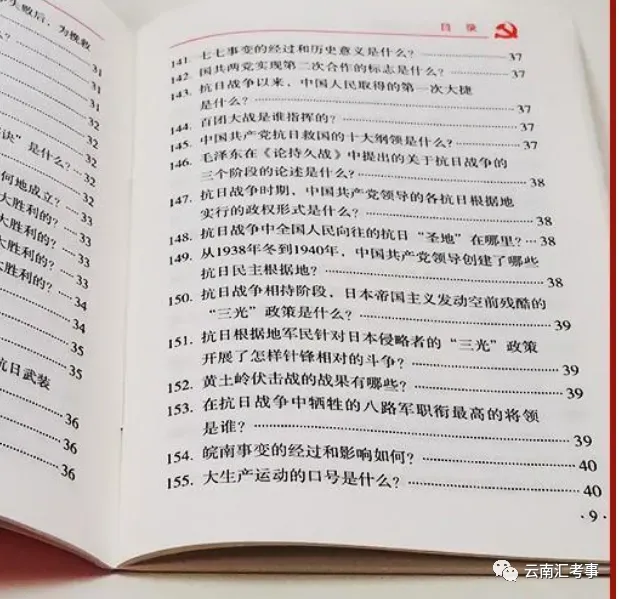 失败后，为挽救
31
31
31
32
诀”是什么？ 32
32
何地成立？ 33
大胜利的？ 33
大胜利的？ 33
大胜利的？ 34
大胜利的？ 34
35
35
抗日武装
36
36
36
目录
141. 七七事变的经过和历史意义是什么？ 37
142. 国共两党实现第二次合作的标志是什么？ 37
143. 抗日战争以来，中国人民取得的第一次大捷
是什么？ 37
144. 百团大战是谁指挥的？ 37
145. 中国共产党抗日救国的十大纲领是什么？ 37
146. 毛泽东在《论持久战》中提出的关于抗日战争的
三个阶段的论述是什么？ 38
147. 抗日战争时期，中国共产党领导的各抗日根据地
实行的政权形式是什么？ 38
148. 抗日战争中全国人民向往的抗日“圣地”在哪里？ 38
149. 从1938年冬到1940年，中国共产党领导创建了哪些
抗日民主根据地？ 38
150. 抗日战争相持阶段，日本帝国主义发动空前残酷的
“三光”政策是什么？ 39
151. 抗日根据地军民针对日本侵略者的“三光”政策
开展了怎样针锋相对的斗争？ 39
152. 黄土岭伏击战的战果有哪些？ 39
153. 在抗日战争中牺牲的八路军职衔最高的将领
是谁？ 39
154. 皖南事变的经过和影响如何？ 40
155. 大生产运动的口号是什么？ 40
·9·
云南汇考事